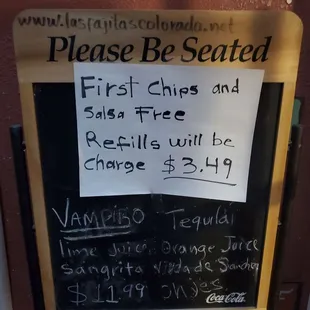 www.lasfajitascolorado.net
Please Be Seated
First Chips and
Salsa Free
Refills will be
charge $3.49
VAMPIRO Tequila
lime Juice, Orange Juice
Sangrita Viuda de Sanchez
$11.99
Coca-Cola